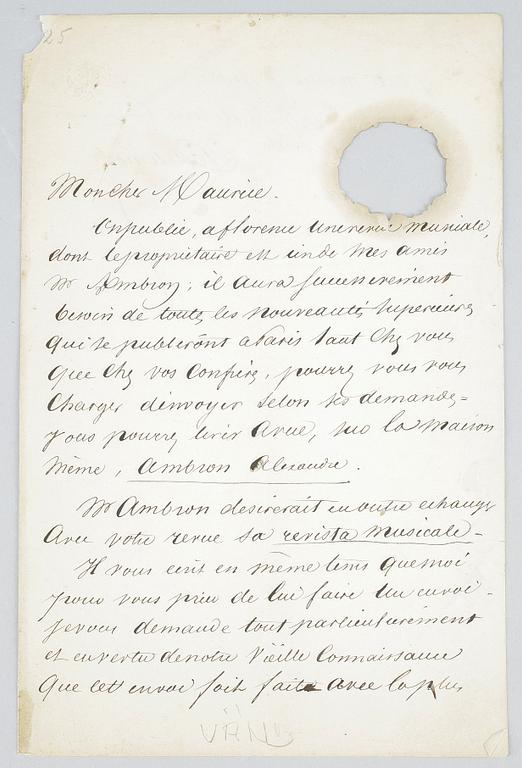 25
Mon cher Maurice.
On publie, a florence une revue musicale,
dont le proprietaire est un de mes amis
Mr Ambron; il aura successivement
besoin de toutes les nouveautés superieures
qui se publieront a Paris tant chez vous
que chez vos Confrères, pourrez vous vous
Charger d'envoyer selon ses demandes-
Vous pourrez tirer avue, sur la maison
même, Ambron Alexandre.
Mr Ambron desirerait en outre echanger
Avec votre revue sa revista musicale-
Il vous ecrit en même tems que moi
pour vous prier de lui faire un envoi-
Je vous demande tout particulierement
et en vertu de notre Vieille Connaissance
Que cet envoi soit fait avec la plus